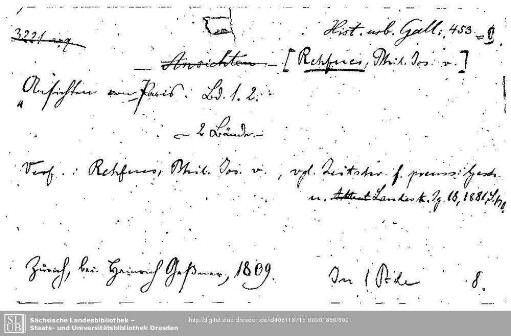 3221 ag
Hist. urb. Gall. 453
— Ansichten — [Rehfues, Phil. Jos. v.]
"Ansichten von Paris. Bd. 1. 2.
— 2 Bände —
Verf.: Rehfues, Phil. Jos. v., vgl. Zeitschr. f. preuss. Gesch.
u. Landesk. Jg. 18, 1881, S.
Zürich, bei Heinrich Geßner, 1809. In 1 Bde 8.
Sächsische Landesbibliothek –
Staats- und Universitätsbibliothek Dresden